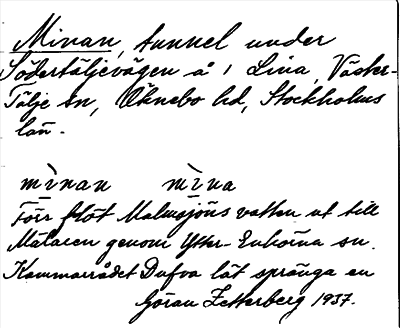 Minan, tunnel under
Södertäljevägen å 1 Lina, Väster-
Tälje sn, Öknebo hd, Stockholms
län.
mìnan mìna
Förr flöt Malmsjöns vatten ut till
Mälaren genom Ytter-Enhörna sn.
Kammarrådet Dufva lät spränga en
Göran Zetterberg 1937.